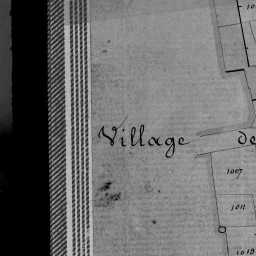 Village de
1007
1011
1018